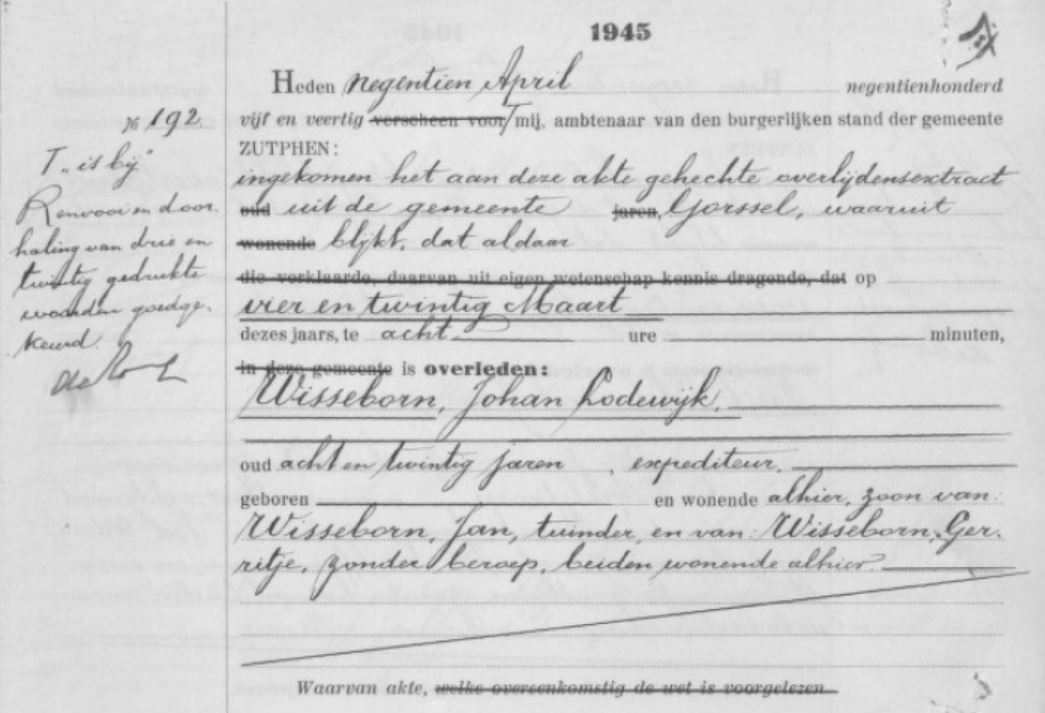 1945
Heden negentien April negentienhonderd
№ 192.
vijf en veertig verscheen voor mij, ambtenaar van den burgerlijken stand der gemeente
ZUTPHEN:
ingekomen het aan deze akte gehechte overlijdensextract
oud uit de gemeente jaren, Gorssel, waaruit
wonende blijkt, dat aldaar
die verklaarde, daarvan uit eigen wetenschap kennis dragende, dat op
vier en twintig Maart
dezes jaars, te acht ure minuten,
in deze gemeente is overleden:
Wisseborn, Johan Lodewijk,
oud acht en twintig jaren, expediteur,
geboren en wonende alhier, zoon van
Wisseborn, Jan, tuinder, en van Wisseborn, Ger-
ritje, zonder beroep, beiden wonende alhier.
Waarvan akte, welke overeenkomstig de wet is voorgelezen.
T „is bij"
Renvooi en door-
haling van drie en
twintig gedrukte
woorden goedge-
keurd.